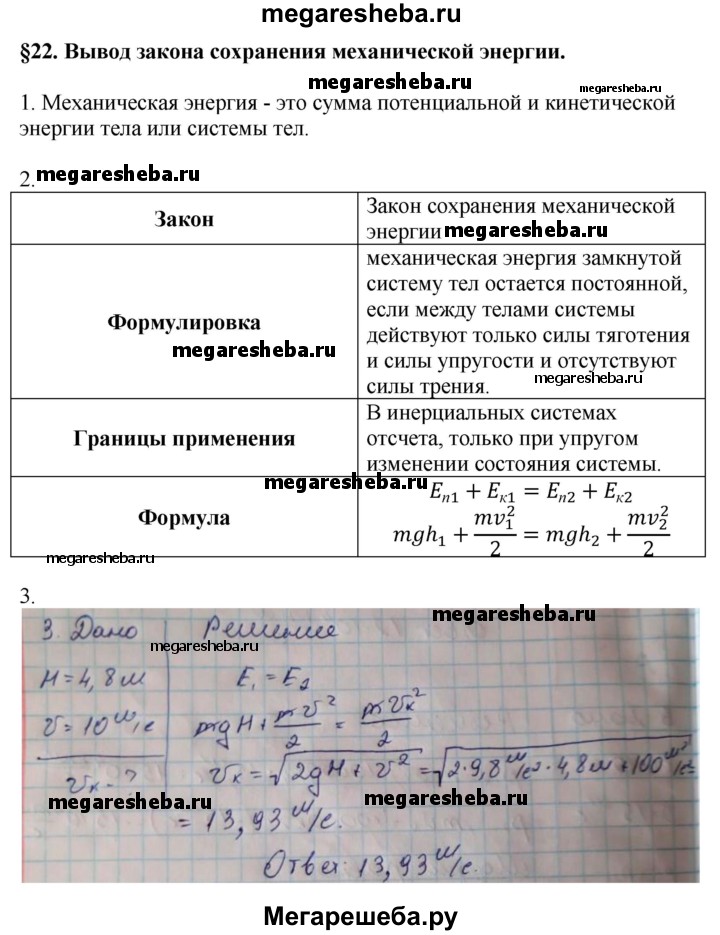 megaresheba.ru
§22. Вывод закона сохранения механической энергии.
megaresheba.ru
megaresheba.ru
1. Механическая энергия - это сумма потенциальной и кинетической
энергии тела или системы тел.
2.
megaresheba.ru
Закон
Закон сохранения механической
энергии
megaresheba.ru
Формулировка
механическая энергия замкнутой
систему тел остается постоянной,
если между телами системы
действуют только силы тяготения
и силы упругости и отсутствуют
силы трения.
megaresheba.ru
megaresheba.ru
Границы применения
В инерциальных системах
отсчета, только при упругом
изменении состояния системы.
megaresheba.ru
Формула
Eп1 + Eк1 = Eп2 + Eк2
mgh₁ + mv₁²/2 = mgh₂ + mv₂²/2
megaresheba.ru
3.
megaresheba.ru
3. Дано Решение
megaresheba.ru
H = 4,8 м E₁ = E₂
υ = 10 м/с mgH + mυ²/2 = mυк²/2
υк - ? υк = √(2gH + υ²) = √(2·9,8 м/с² · 4,8 м + 100 м²/с² =
megaresheba.ru
= 13,93 м/с.
Ответ: 13,93 м/с.
megaresheba.ru
Мегарешеба.ру